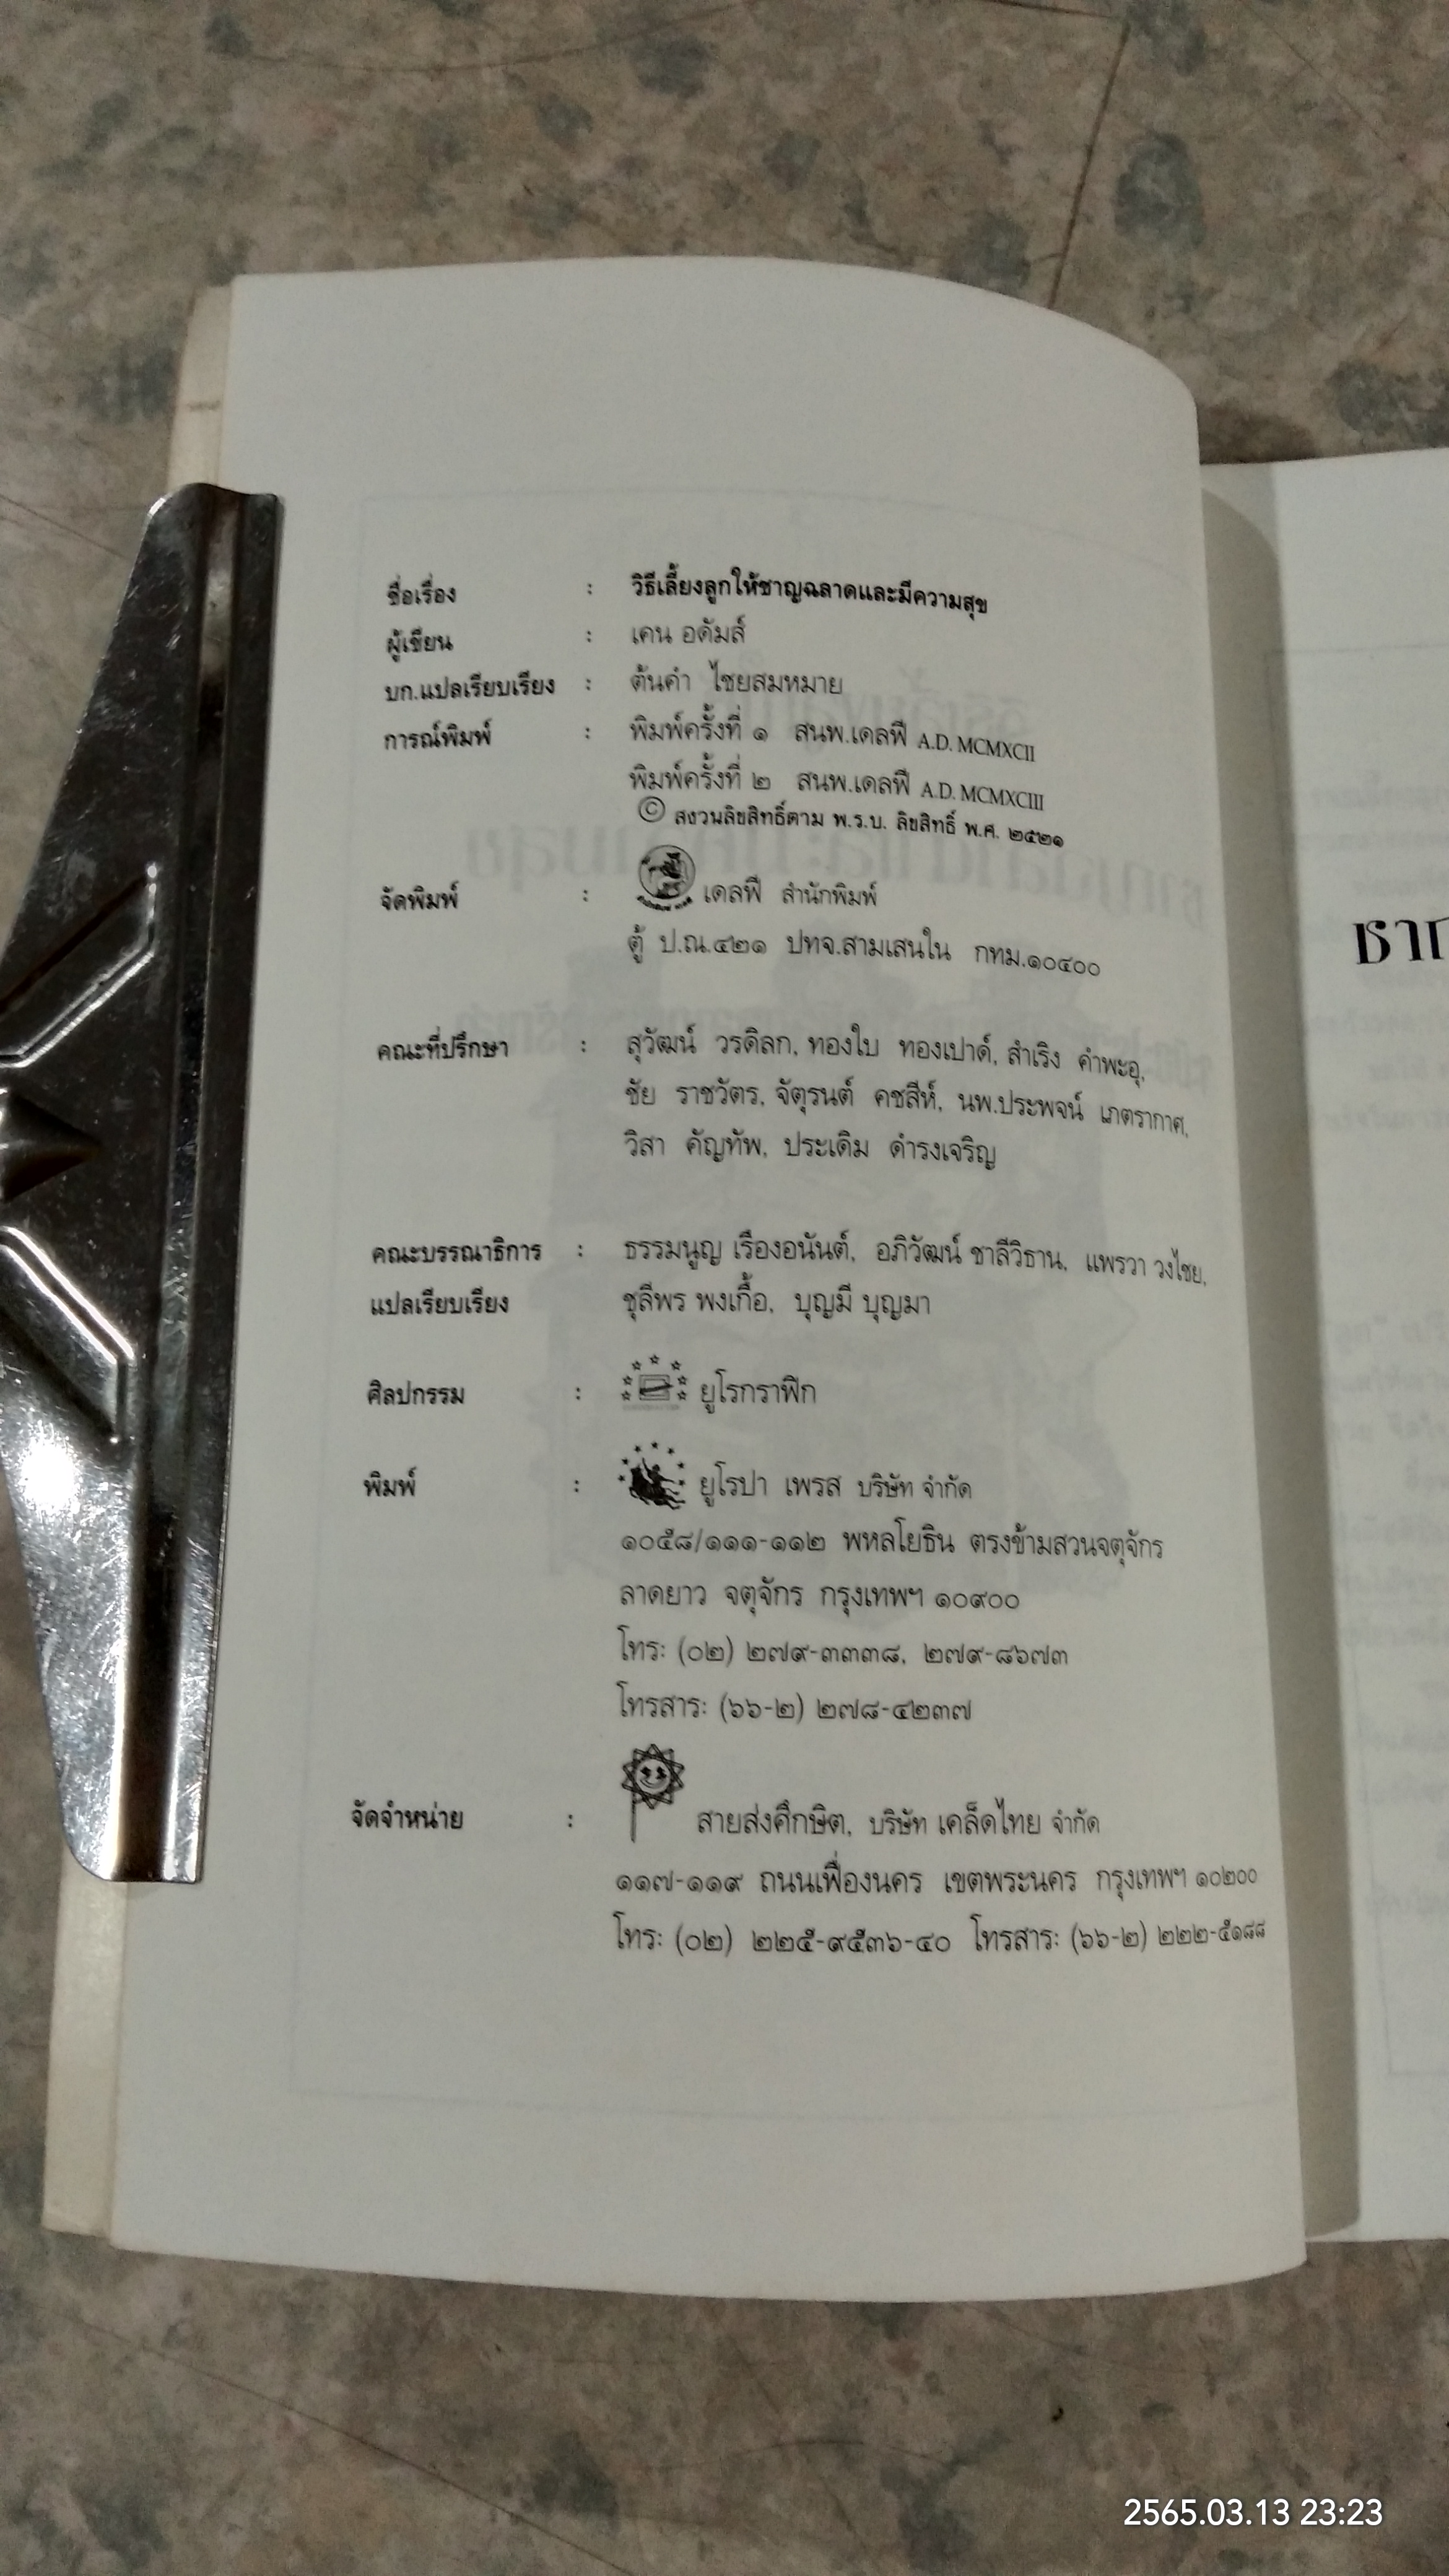 ชื่อเรื่อง : วิธีเลี้ยงลูกให้ชาญฉลาดและมีความสุข
ผู้เขียน : เคน อดัมส์
บก.แปลเรียบเรียง : ต้นคำ ไชยสมหมาย
การณ์พิมพ์ : พิมพ์ครั้งที่ ๑ สนพ.เดลฟี A.D. MCMXCII
พิมพ์ครั้งที่ ๒ สนพ.เดลฟี A.D. MCMXCIII
© สงวนลิขสิทธิ์ตาม พ.ร.บ. ลิขสิทธิ์ พ.ศ. ๒๕๒๑
จัดพิมพ์ : เดลฟี สำนักพิมพ์
ตู้ ป.ณ.๔๒๑ ปทจ.สามเสนใน กทม.๑๐๔๐๐
คณะที่ปรึกษา : สุวัฒน์ วรดิลก, ทองใบ ทองเปาด์, สำเริง คำพะอุ,
ชัย ราชวัตร, จัตุรนต์ คชสีห์, นพ.ประพจน์ เภตรากาศ,
วิสา คัญทัพ, ประเดิม ดำรงเจริญ
คณะบรรณาธิการ : ธรรมนูญ เรืองอนันต์, อภิวัฒน์ ชาลีวิธาน, แพรวา วงไชย,
แปลเรียบเรียง ชุลีพร พงเกื้อ, บุญมี บุญมา
ศิลปกรรม : ยูโรกราฟิก
พิมพ์ : ยูโรปา เพรส บริษัท จำกัด
๑๐๕๘/๑๑๑-๑๑๒ พหลโยธิน ตรงข้ามสวนจตุจักร
ลาดยาว จตุจักร กรุงเทพฯ ๑๐๙๐๐
โทร: (๐๒) ๒๗๙-๓๓๓๘, ๒๗๙-๘๖๗๓
โทรสาร: (๖๖-๒) ๒๗๘-๔๒๓๗
จัดจำหน่าย : สายส่งศึกษิต, บริษัท เคล็ดไทย จำกัด
๑๑๗-๑๑๙ ถนนเฟื่องนคร เขตพระนคร กรุงเทพฯ ๑๐๒๐๐
โทร: (๐๒) ๒๒๕-๙๕๓๖-๔๐ โทรสาร: (๖๖-๒) ๒๒๒-๕๑๘๘
2565.03.13 23:23